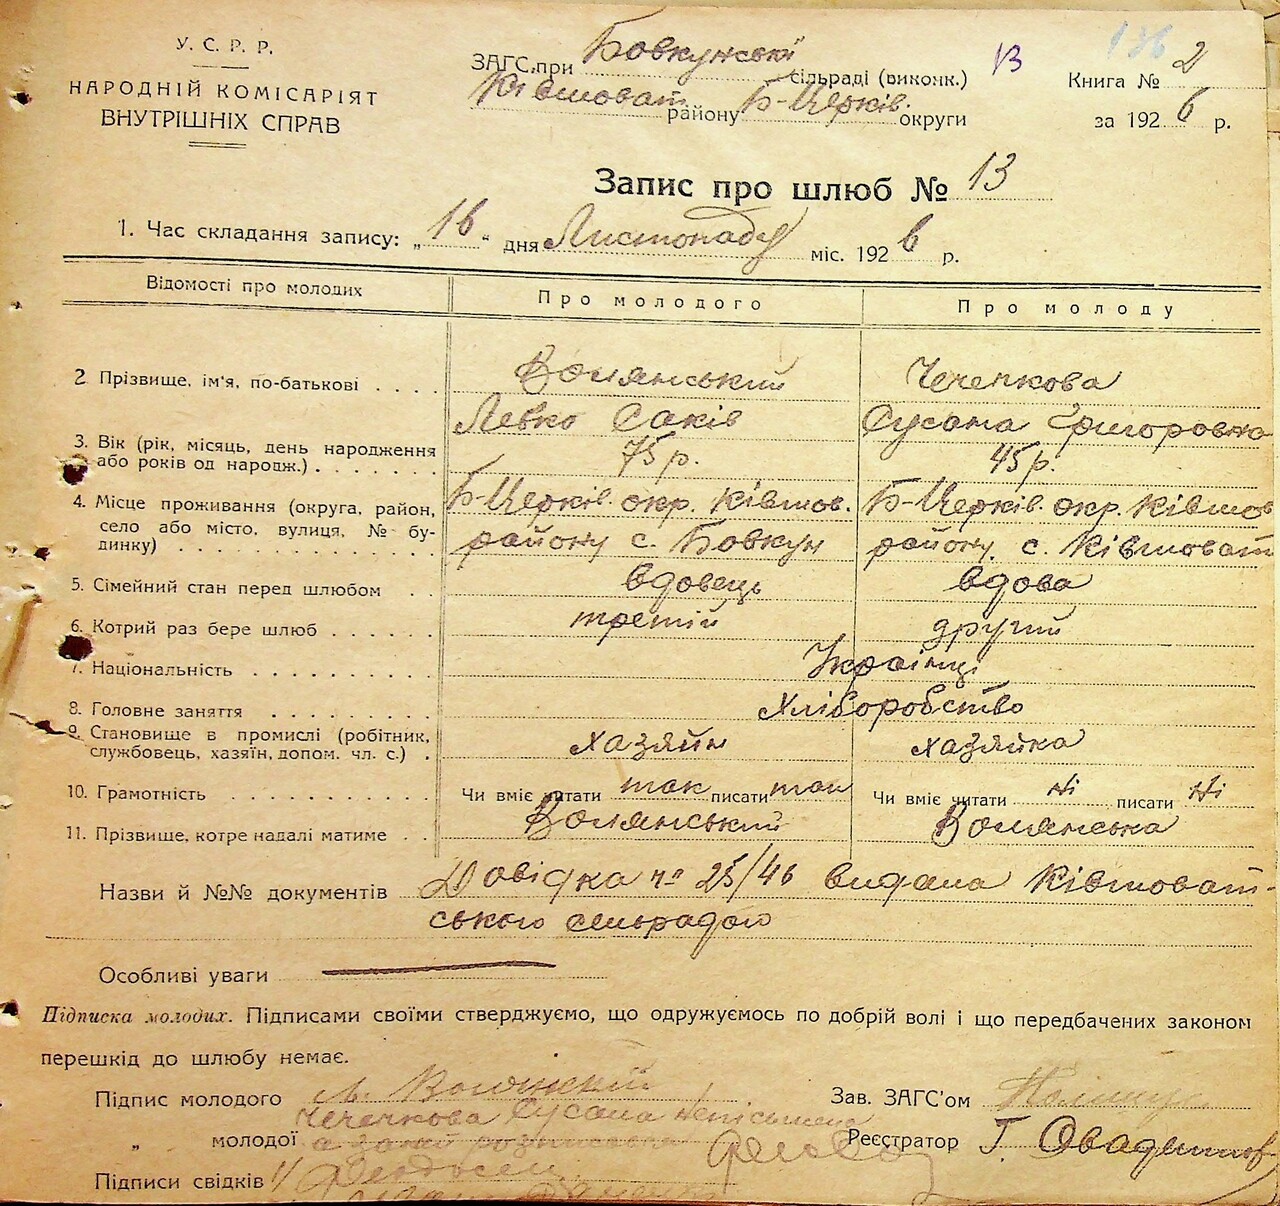 У. С. Р. Р.
НАРОДНІЙ КОМІСАРІЯТ
ВНУТРІШНІХ СПРАВ
ЗАГС при Бовкунські сільраді (виконк.)
Ківшоват району Б-Церків. округи
13
136
Книга № 2
за 1926 р.
Запис про шлюб № 13
1. Час складання запису: „16“ дня Листопаду міс. 1926 р.
Відомості про молодих Про молодого Про молоду
2 Прізвище, ім'я, по-батькові . . . Волянський Чечепкова
Левко Саків Сусана Григоровна
3. Вік (рік, місяць, день народження 75 р. 45 р.
або років од народж.) . . . . . . .
4. Місце проживання (округа, район, Б-Церків. окр. Ківшов. Б-Церків. окр. Ківшов
село або місто, вулиця, № бу-
динку) . . . . . . . . . . . . району с. Бовкун району с. Ківшоват
5. Сімейний стан перед шлюбом . . вдовець вдова
6. Котрий раз бере шлюб . . . . . . третій другий
7. Національність . . . . . . . . . . Українці
8. Головне заняття . . . . . . . . . Хліборобство
9. Становище в промислі (робітник,
службовець, хазяїн, допом. чл. с.) . хазяйн хазяйка
10. Грамотність . . . . . . . . . . . Чи вміє читати так писати так Чи вміє читати ні писати ні
11. Прізвище, котре надалі матиме . . Волянський Волянська
Назви й №№ документів Довідка № 25/46 видана Ківшоват-
ського сельрадою
Особливі уваги
Підписка молодих. Підписами своїми стверджуємо, що одружуємось по добрій волі і що передбачених законом
перешкід до шлюбу немає.
Підпис молодого Л. Волянский Зав. ЗАГС'ом
„ молодої Сусана неписьмена Реєстратор Г.
Підписи свідків 1/